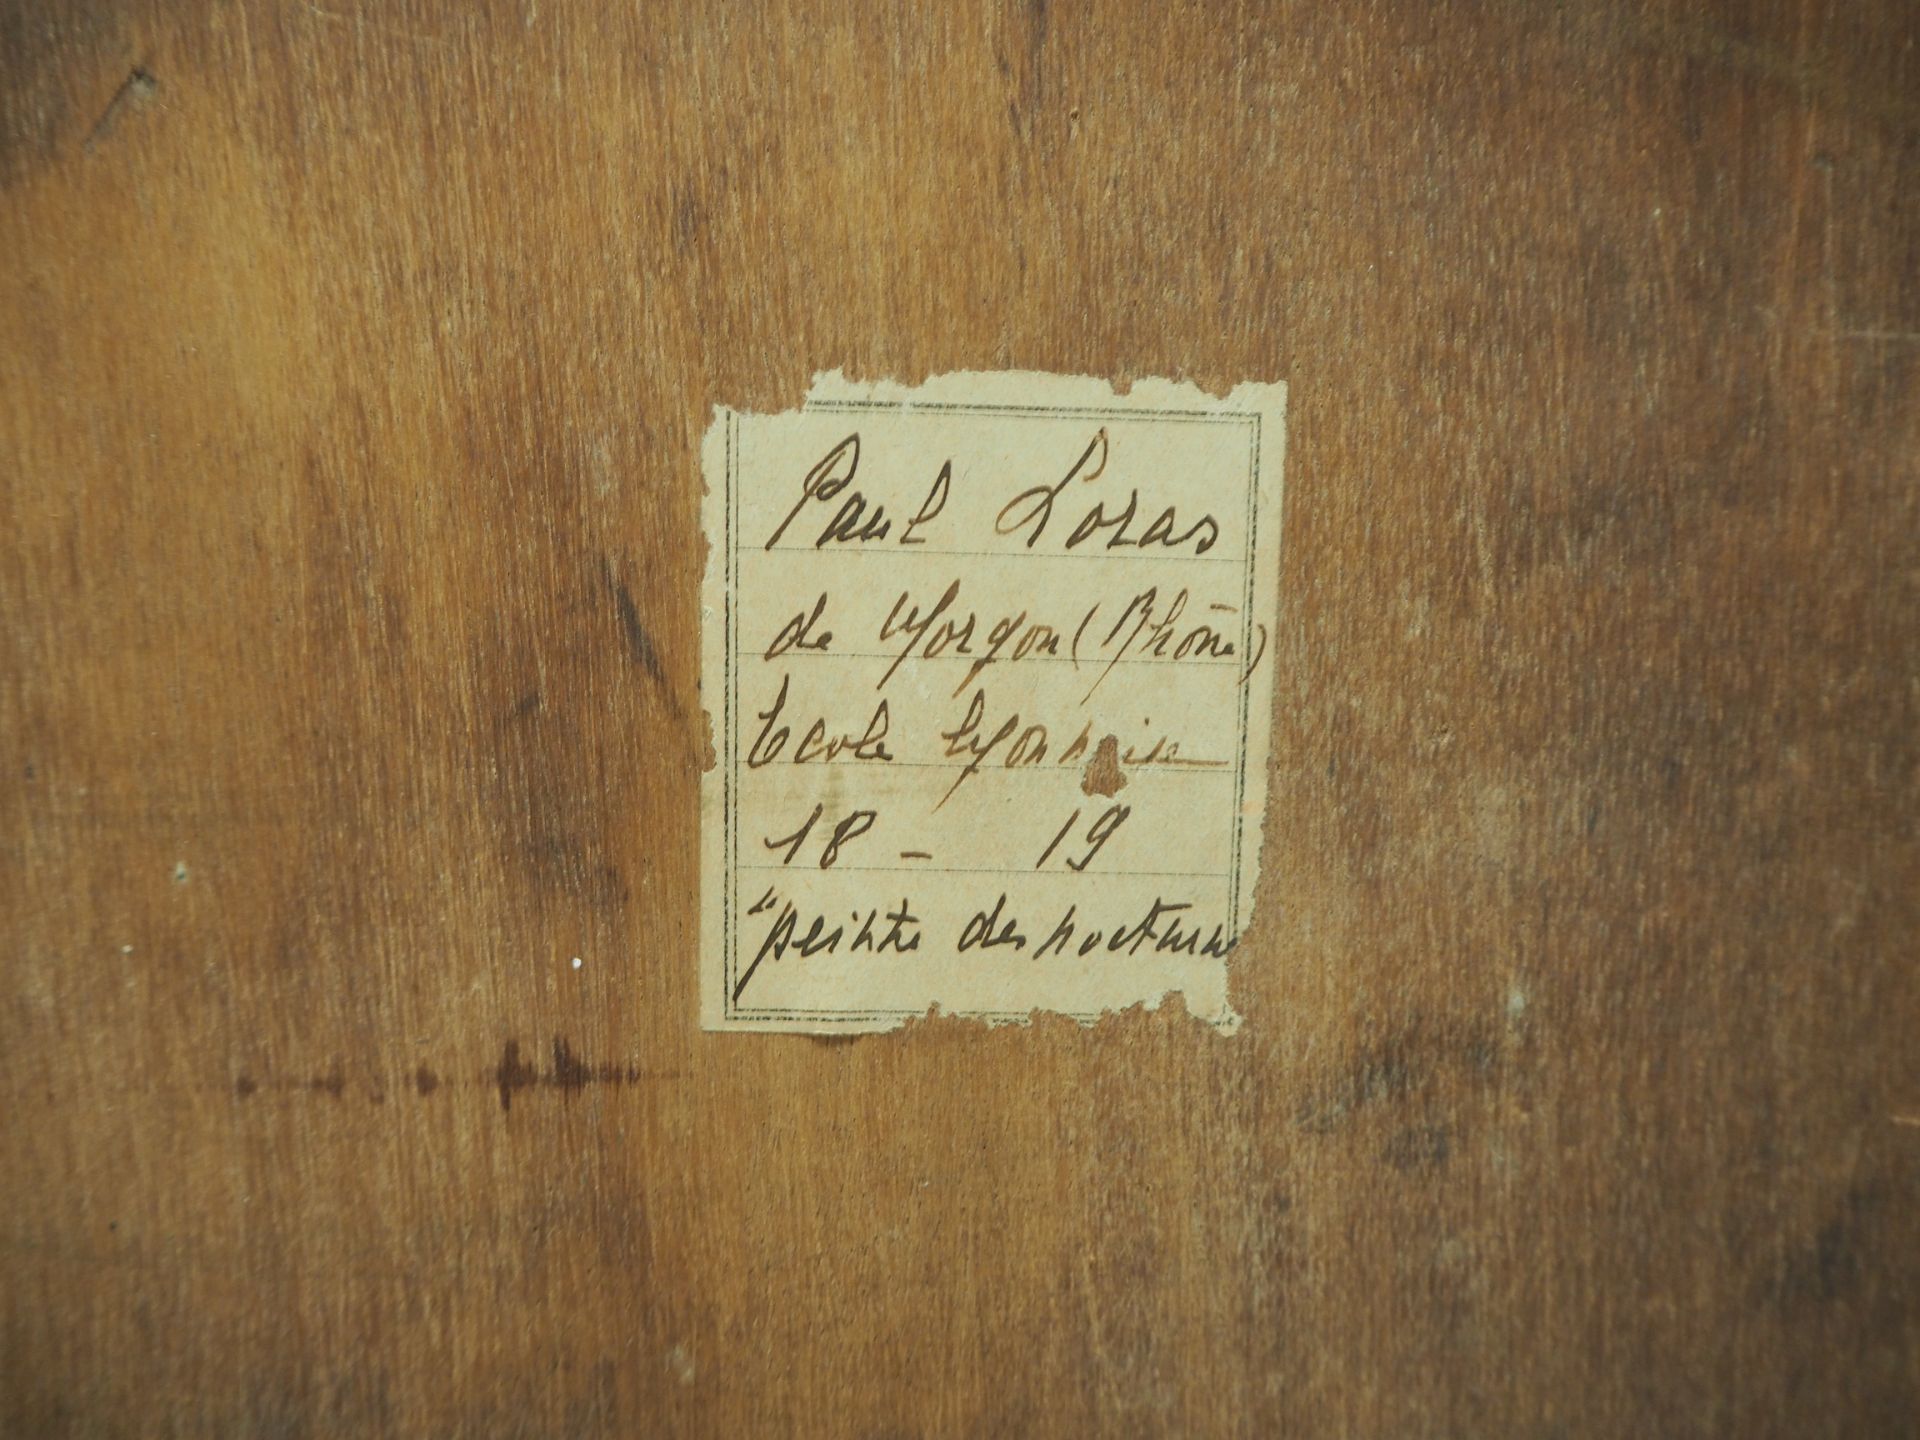 Paul Loras
de Morgon (Rhône)
Ecole lyonnaise
18 - 19
"peintre des nocturne